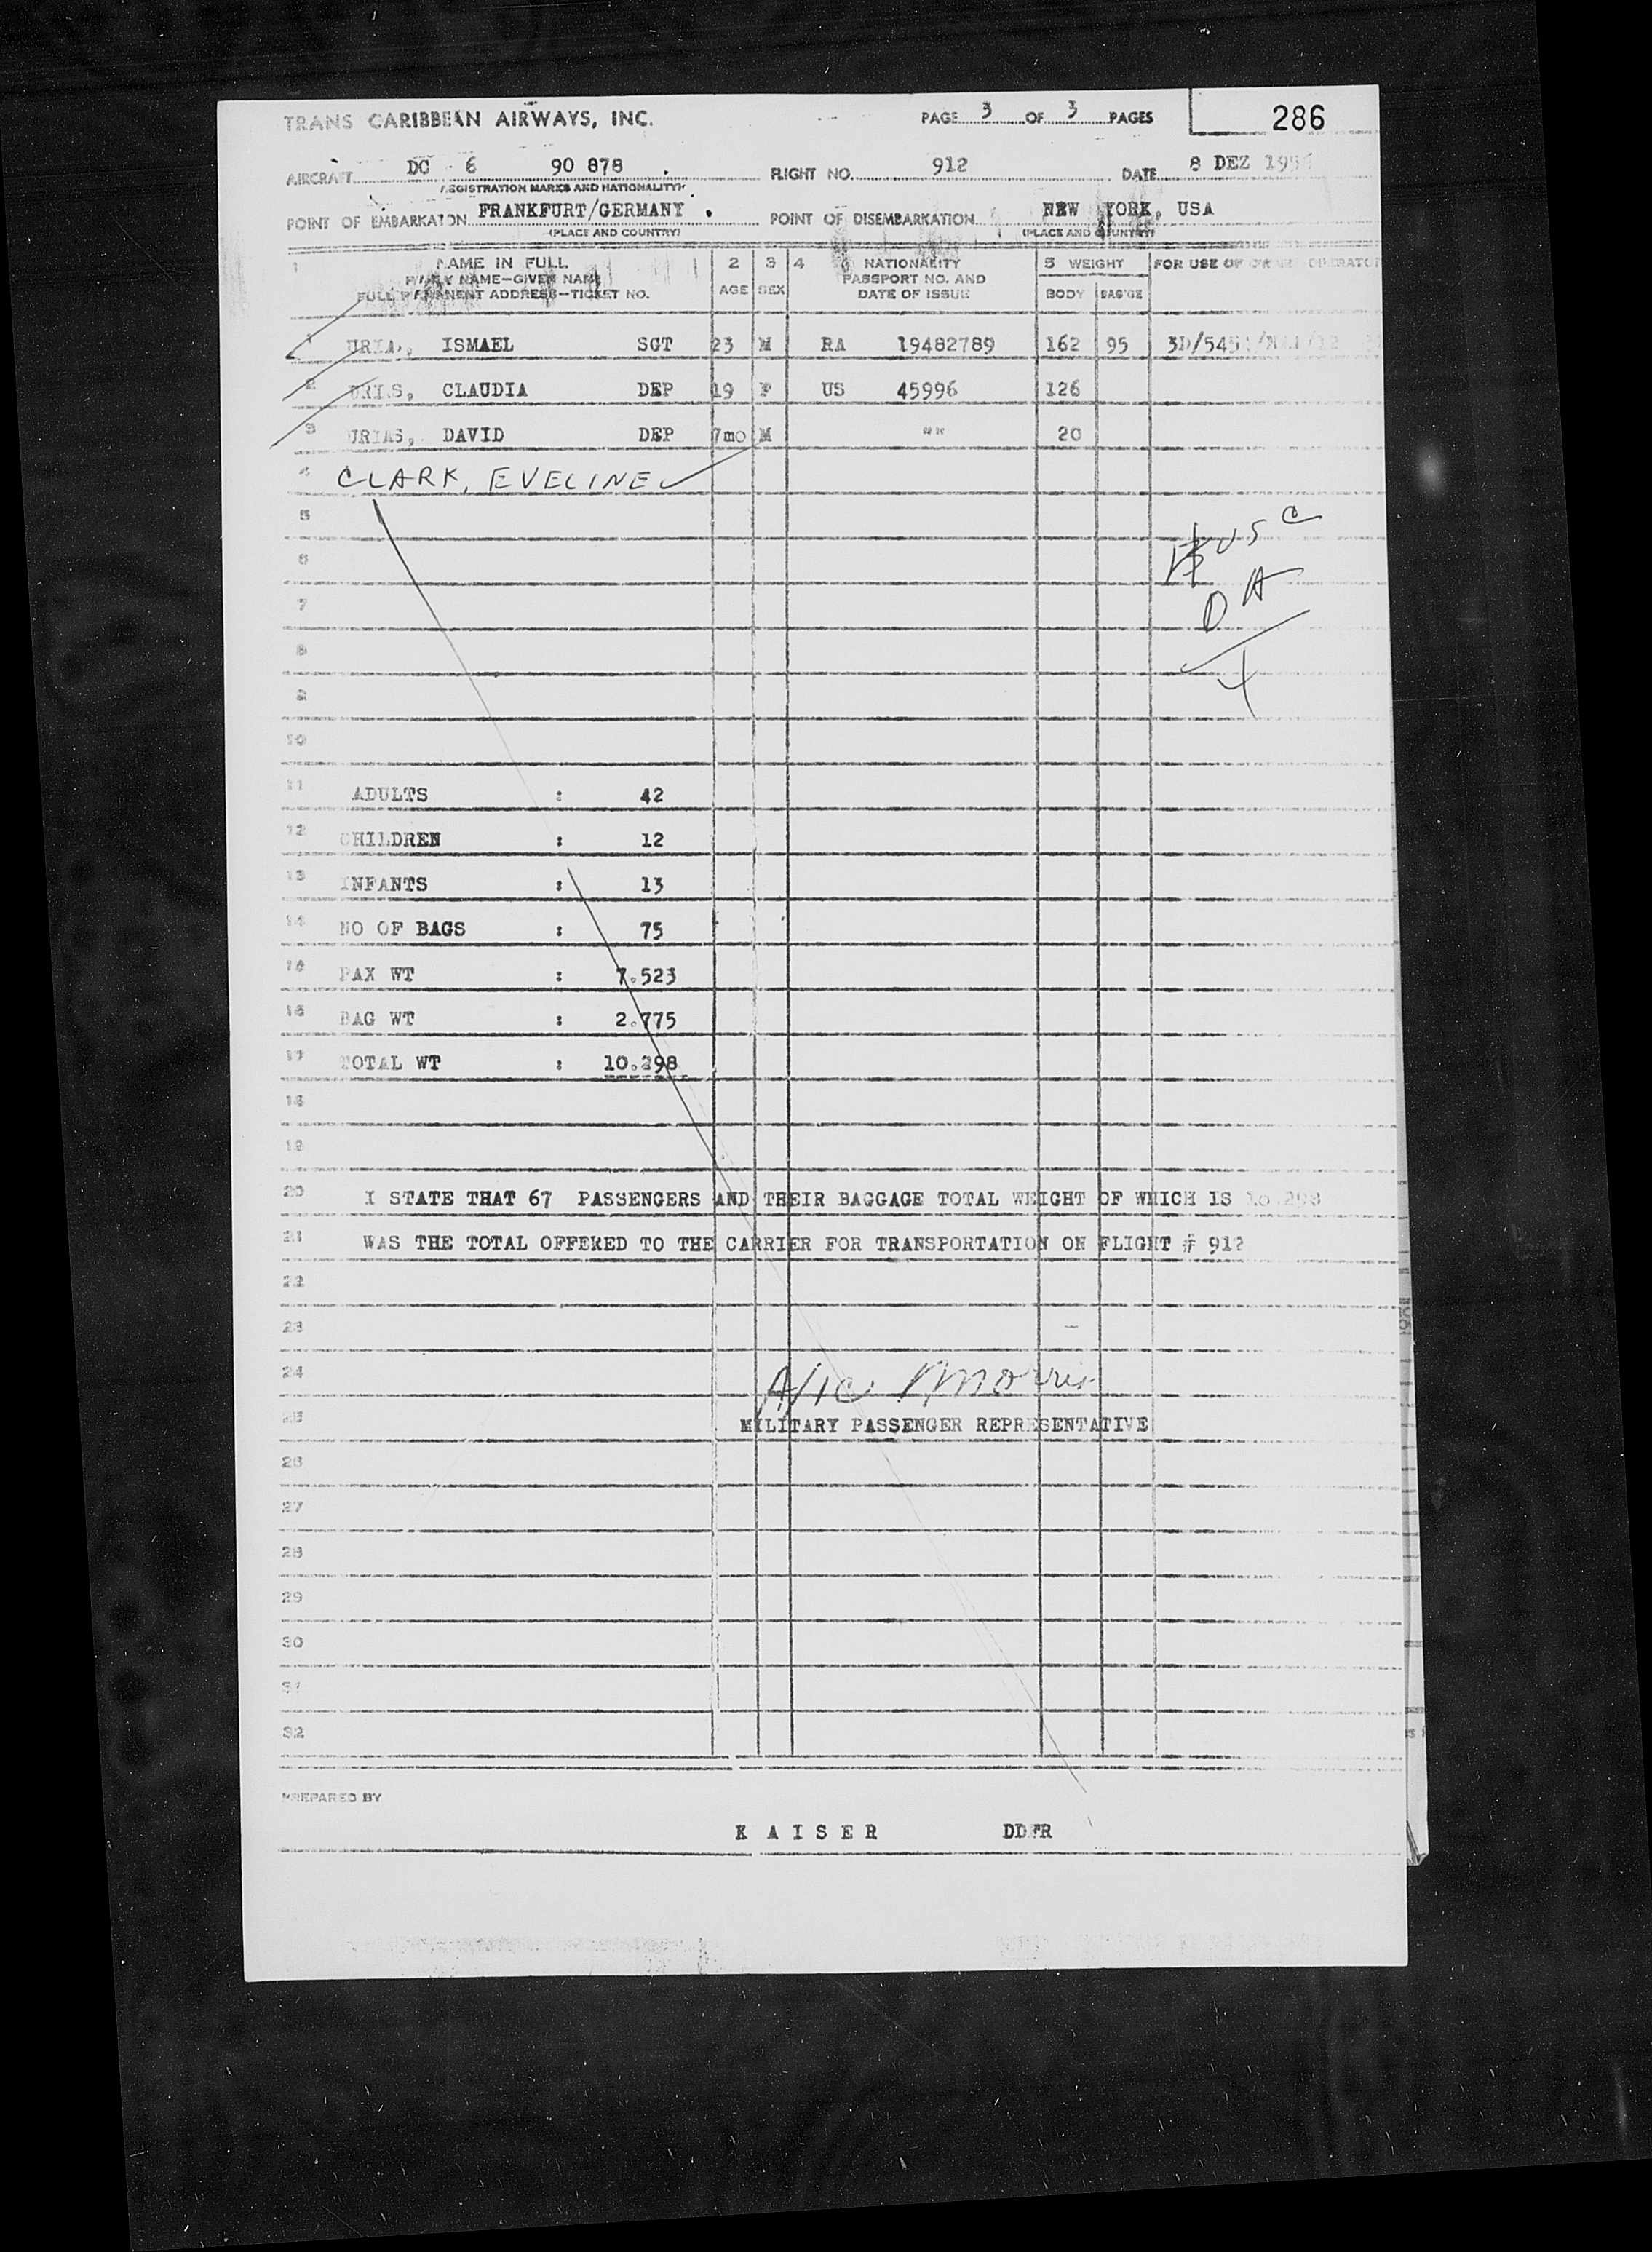 TRANS CARIBBEAN AIRWAYS, INC. PAGE 3 OF 3 PAGES 286
AIRCRAFT DC - 6 90 878 FLIGHT NO. 912 DATE 8 DEZ
(REGISTRATION MARKS AND NATIONALITY)
POINT OF EMBARKATION FRANKFURT/GERMANY . POINT OF DISEMBARKATION NEW YORK, USA
(PLACE AND COUNTRY) (PLACE AND COUNTRY)
1 NAME IN FULL 2 3 4 NATIONALITY 5 WEIGHT FOR USE OF
FAMILY NAME—GIVEN NAME PASSPORT NO. AND
FULL PERMANENT ADDRESS—TICKET NO. AGE SEX DATE OF ISSUE BODY BAG'GE
1 URIAS, ISMAEL SGT 23 M RA 19482789 162 95
2 URIAS, CLAUDIA DEP 19 F US 45996 126
3 URIAS, DAVID DEP 7mo M "" 20
4 CLARK, EVELINE
5
USC
6
7
A
8
9
10
11 ADULTS : 42
12 CHILDREN : 12
13 INFANTS : 13
14 NO OF BAGS : 75
15 PAX WT : 7.523
16 BAG WT : 2.775
17 TOTAL WT : 10.298
18
19
20 I STATE THAT 67 PASSENGERS AND THEIR BAGGAGE TOTAL WEIGHT OF WHICH IS 10.298
21 WAS THE TOTAL OFFERED TO THE CARRIER FOR TRANSPORTATION ON FLIGHT # 912
22
23
24 A/1C Morris
25 MILITARY PASSENGER REPRESENTATIVE
26
27
28
29
30
31
32
PREPARED BY
K A I S E R DDFR